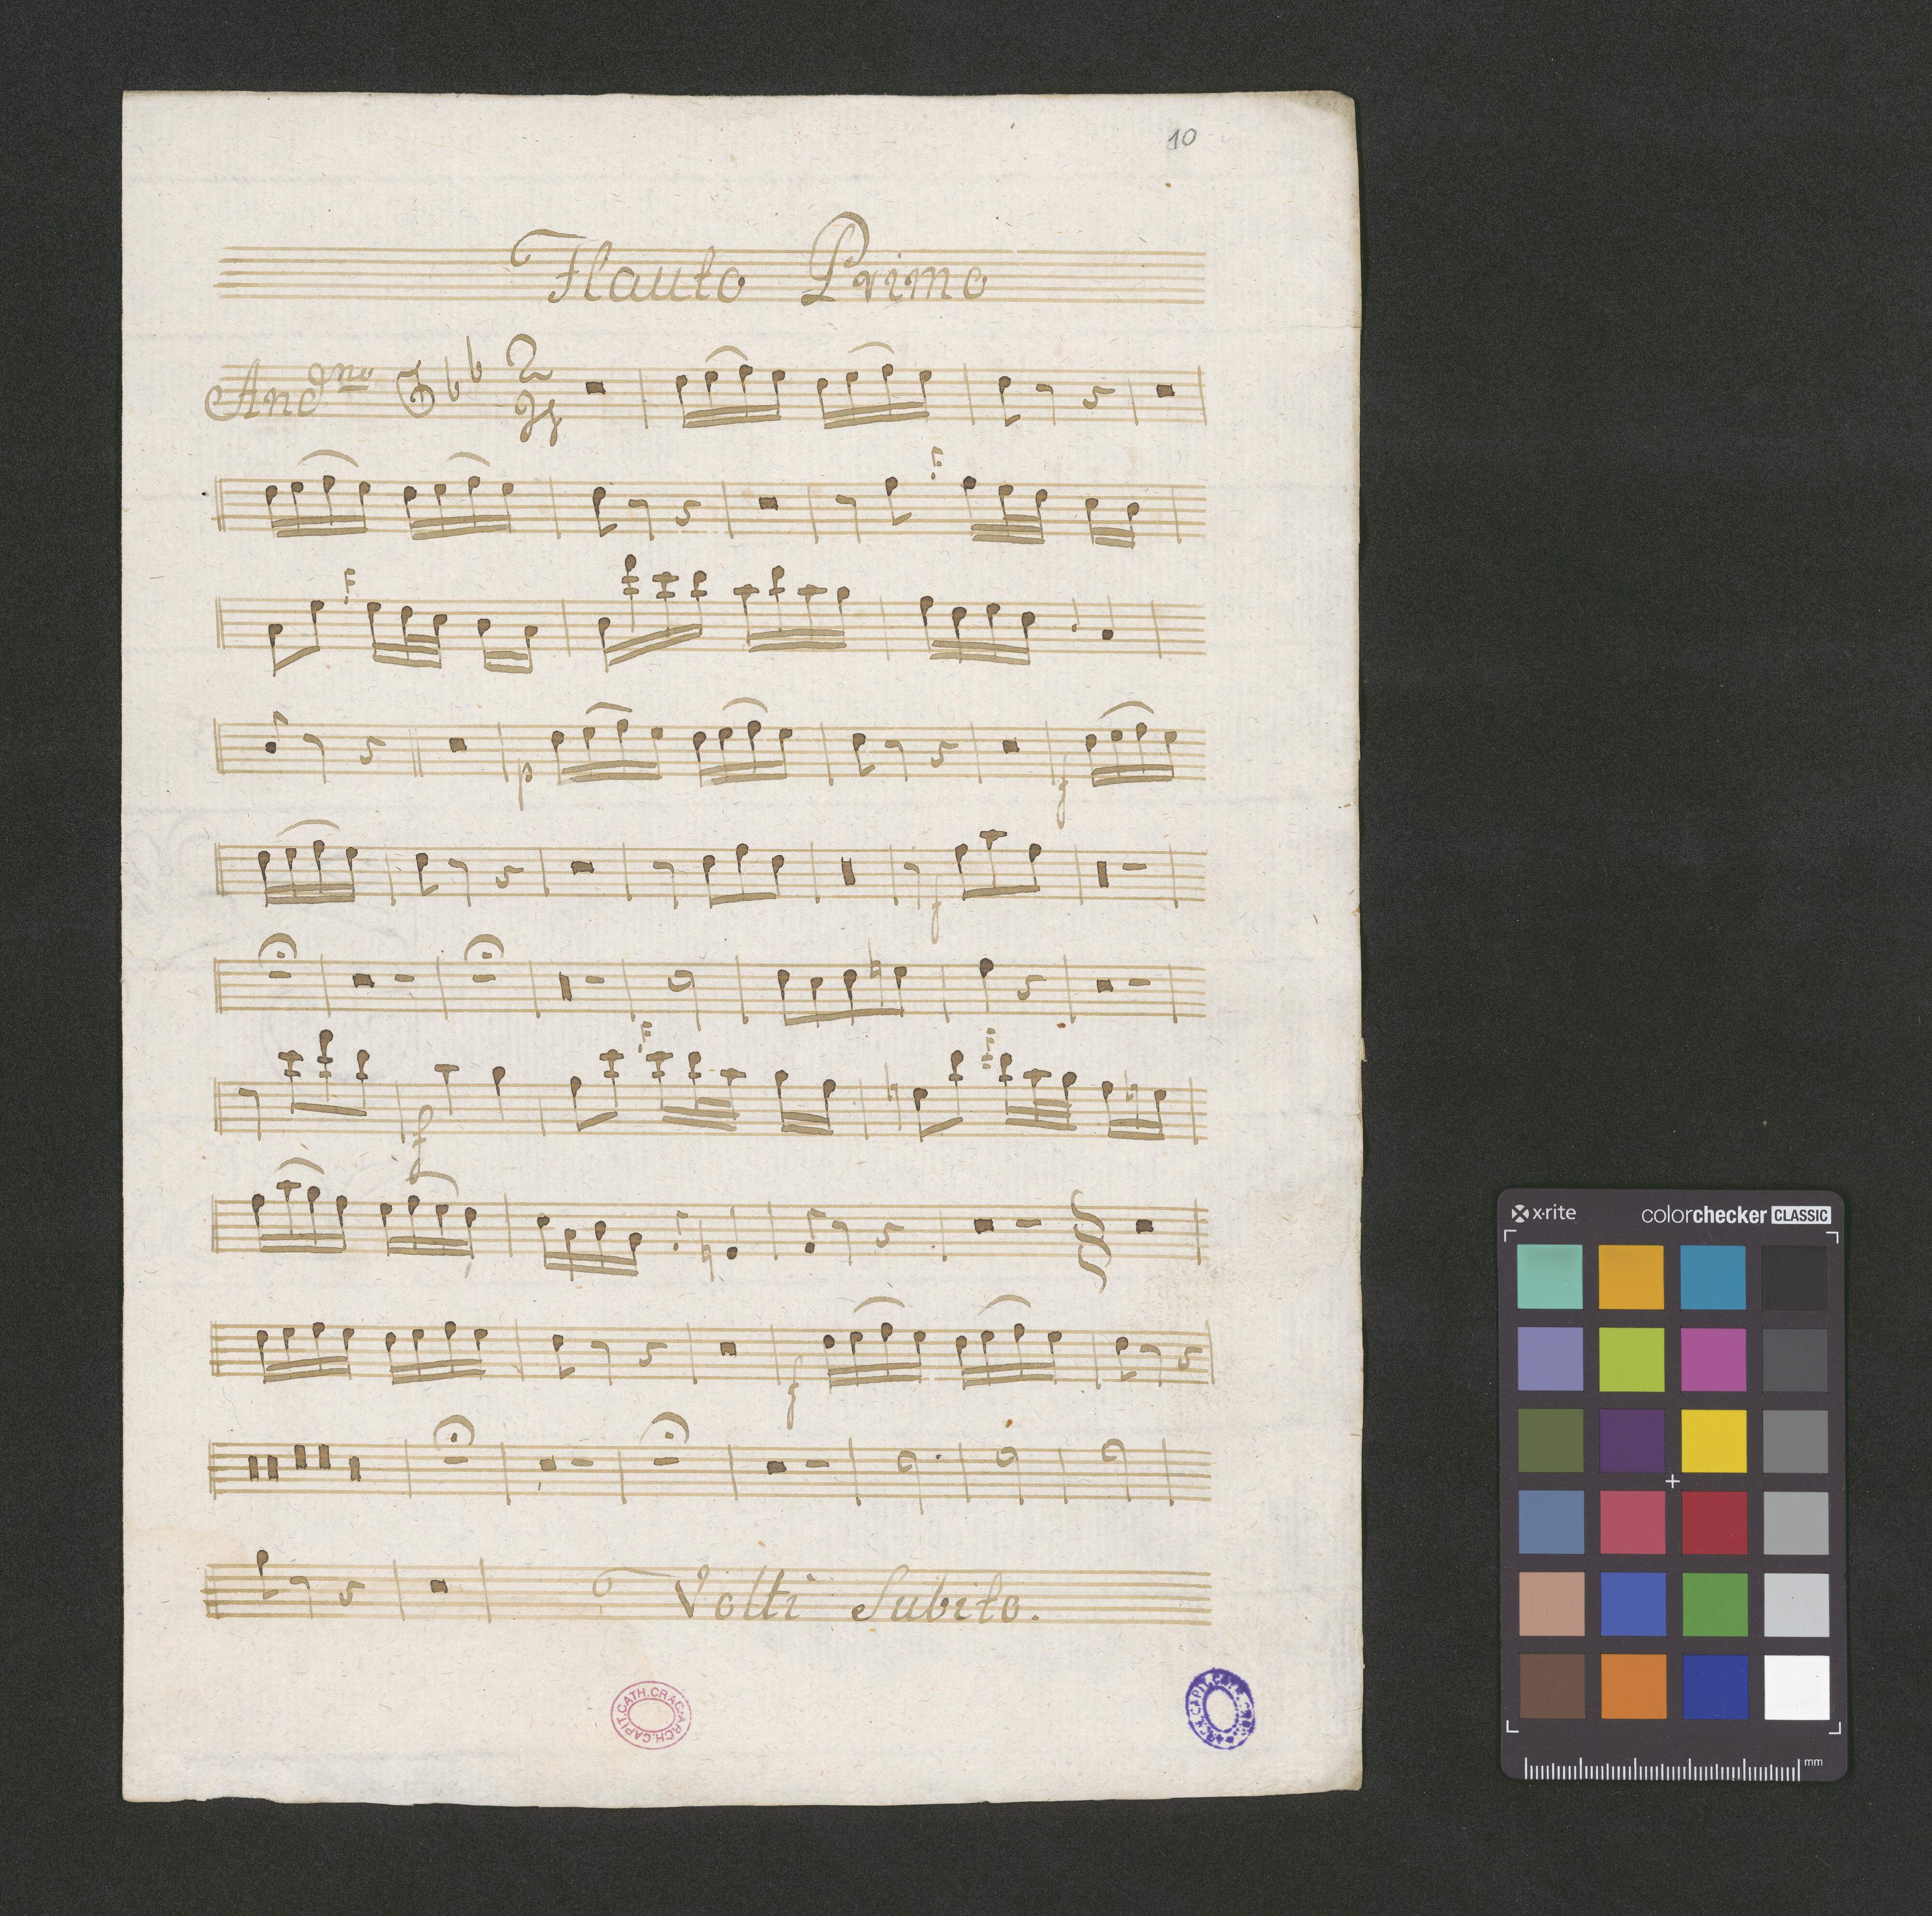 10
Flauto Primo
And.no 2 4
p f
f
f
f
Volti Subito.
ARCH.CAPIT.CATH.CRAC.
x-rite colorchecker CLASSIC
mm